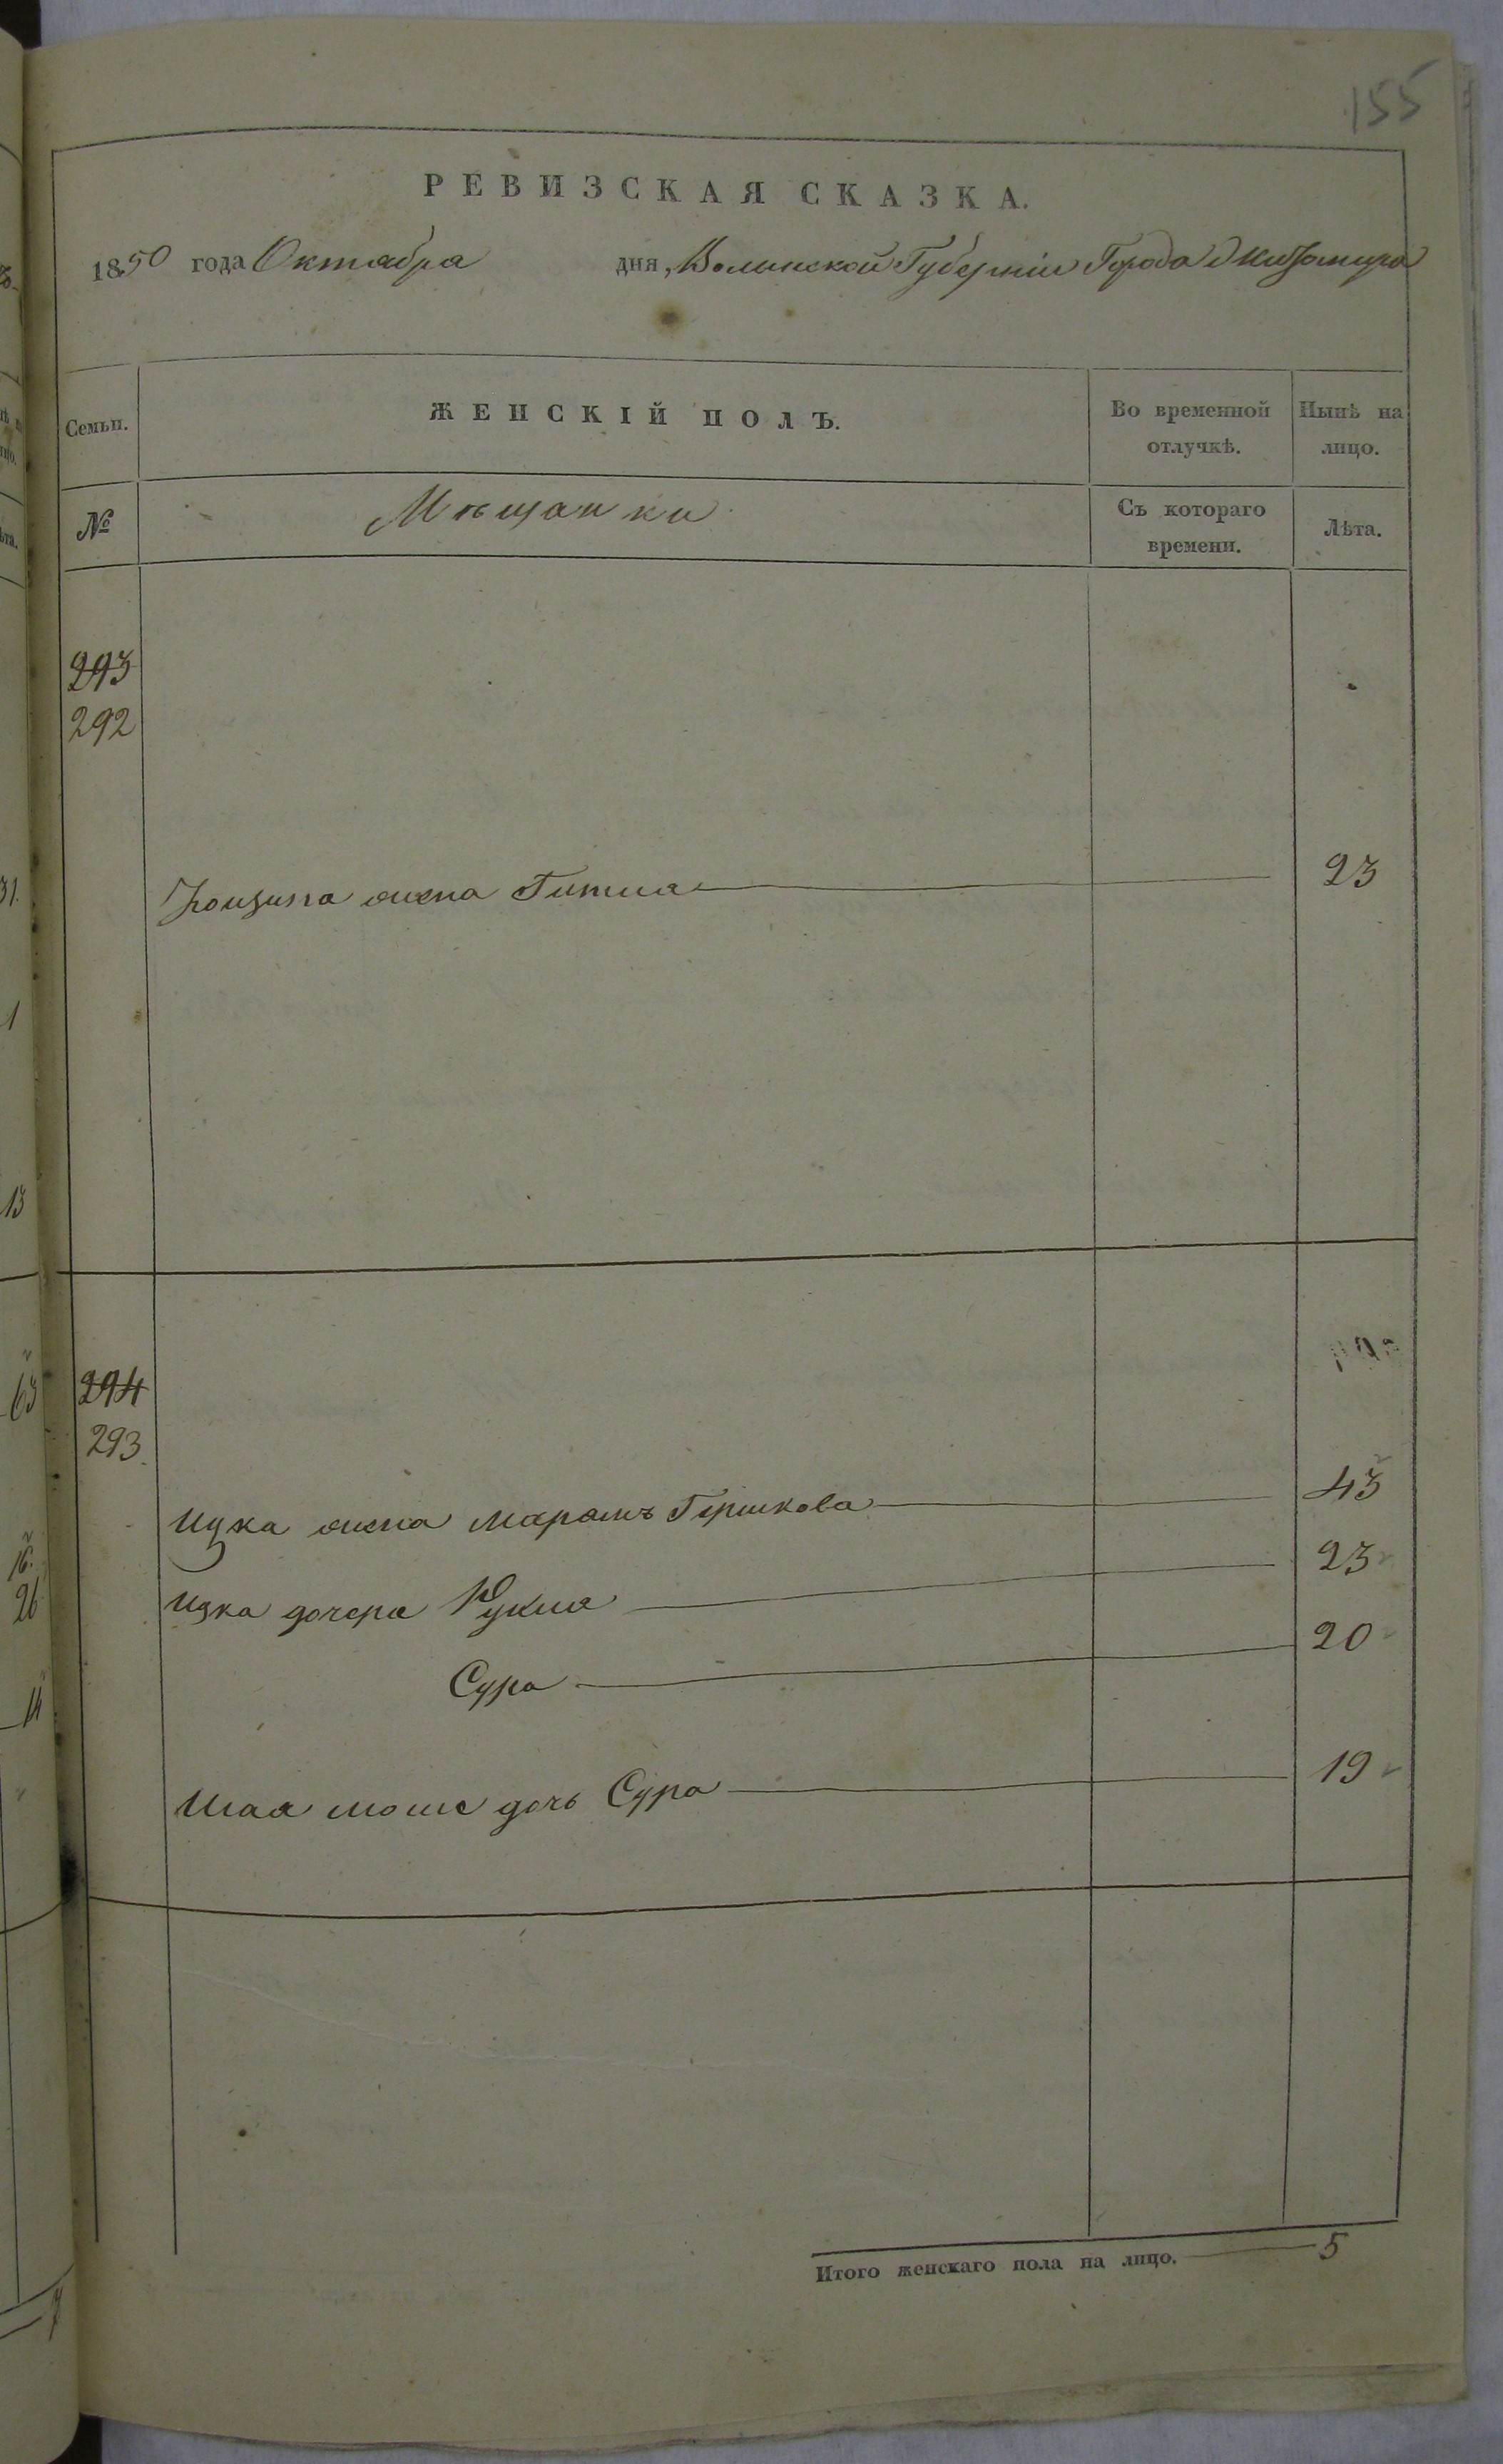 155
РЕВИЗСКАЯ СКАЗКА.
1850 года Октября дня, Волынской Губерніи Города Житомира
Семьи. ЖЕНСКІЙ ПОЛЪ. Во временной отлучкѣ. Нынѣ на лицо.
№ Мѣщанки Съ котораго времени. Лѣта.
293
292
жена Гитля 23
294
293
Ицка жена Маріамъ Гершкова 43
Ицка дочери Рухля 23
Сура 20
Шая Моше дочь Сура 19
Итого женскаго пола на лицо. 5